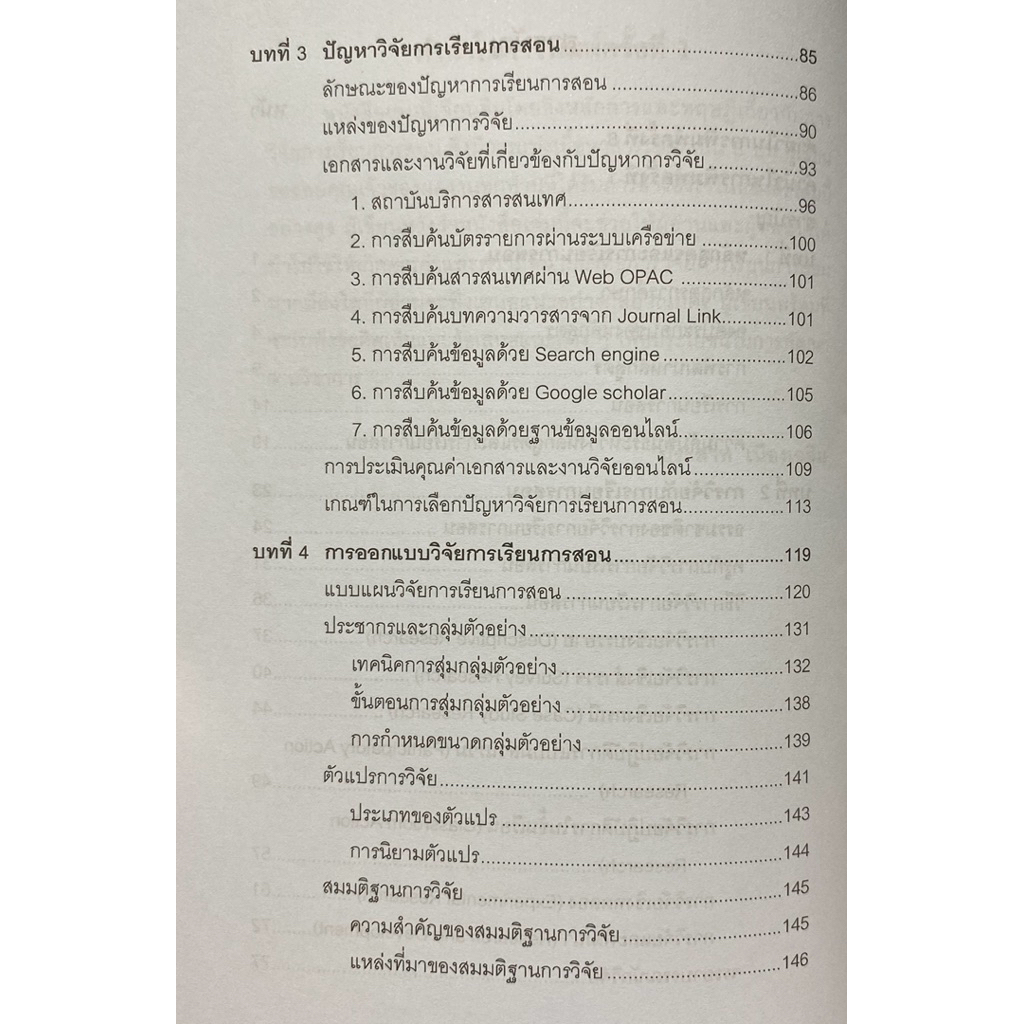 บทที่ 3 ปัญหาวิจัยการเรียนการสอน 85
ลักษณะของปัญหาการเรียนการสอน 86
แหล่งของปัญหาการวิจัย 90
เอกสารและงานวิจัยที่เกี่ยวข้องกับปัญหาการวิจัย 93
1. สถาบันบริการสารสนเทศ 96
2. การสืบค้นบัตรรายการผ่านระบบเครือข่าย 100
3. การสืบค้นสารสนเทศผ่าน Web OPAC 101
4. การสืบค้นบทความวารสารจาก Journal Link 101
5. การสืบค้นข้อมูลด้วย Search engine 102
6. การสืบค้นข้อมูลด้วย Google scholar 105
7. การสืบค้นข้อมูลด้วยฐานข้อมูลออนไลน์ 106
การประเมินคุณค่าเอกสารและงานวิจัยออนไลน์ 109
เกณฑ์ในการเลือกปัญหาวิจัยการเรียนการสอน 113
บทที่ 4 การออกแบบวิจัยการเรียนการสอน 119
แบบแผนวิจัยการเรียนการสอน 120
ประชากรและกลุ่มตัวอย่าง 131
เทคนิคการสุ่มกลุ่มตัวอย่าง 132
ขั้นตอนการสุ่มกลุ่มตัวอย่าง 138
การกำหนดขนาดกลุ่มตัวอย่าง 139
ตัวแปรการวิจัย 141
ประเภทของตัวแปร 143
การนิยามตัวแปร 144
สมมติฐานการวิจัย 145
ความสำคัญของสมมติฐานการวิจัย 145
แหล่งที่มาของสมมติฐานการวิจัย 146